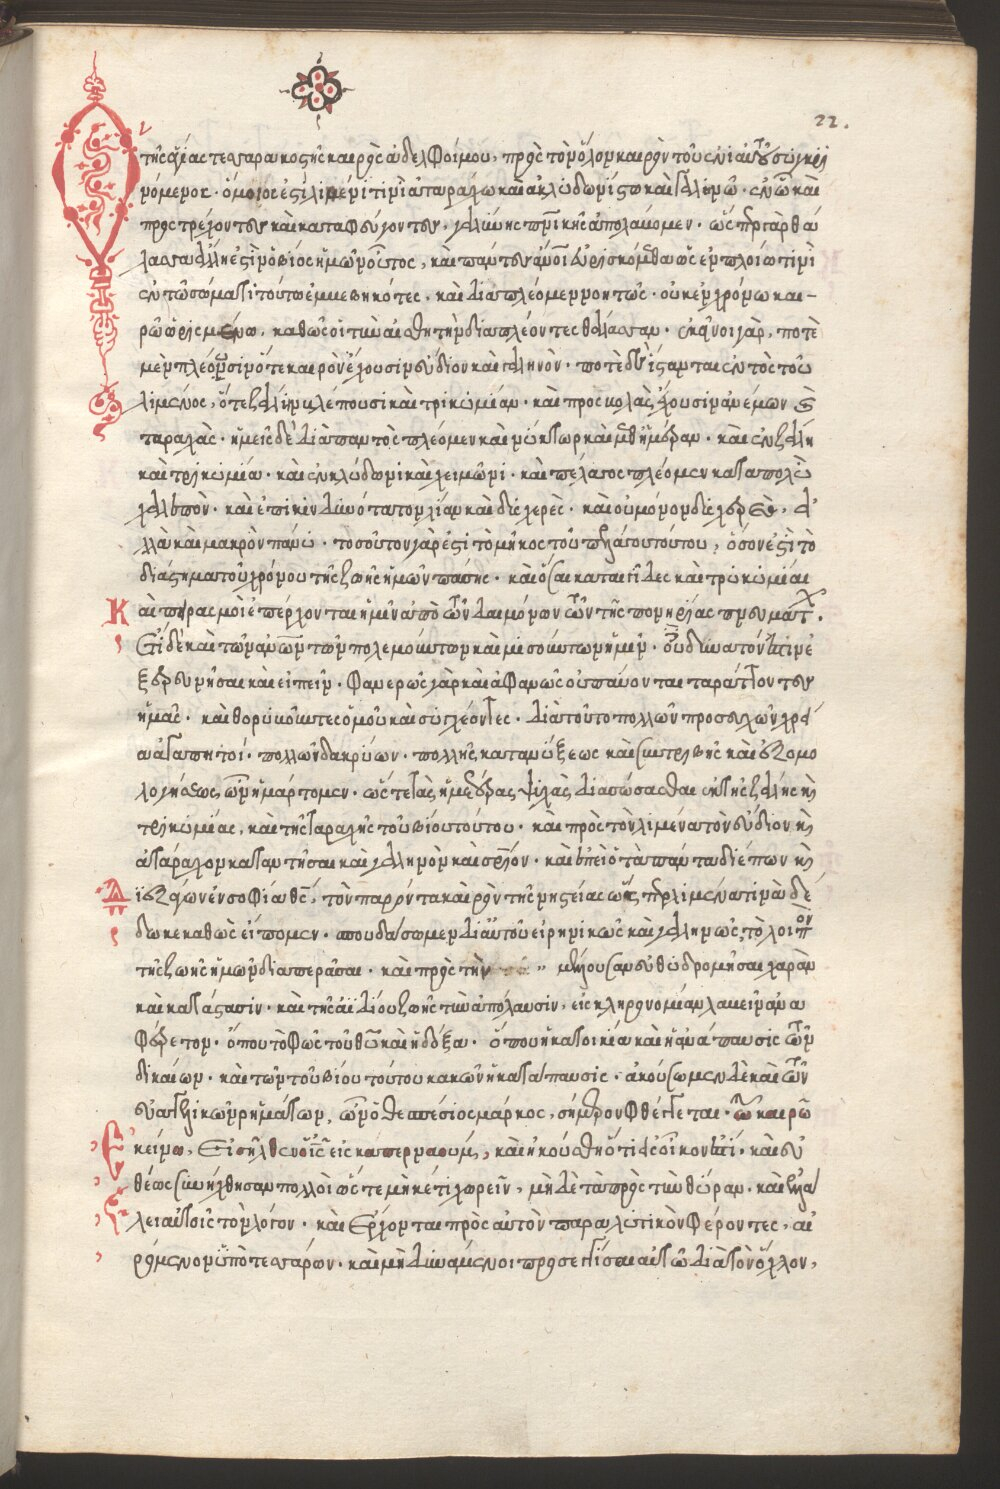 22.
Ὁ τῆς ἁγίας τεσσαρακοστῆς καιρὸς ἀδελφοί μου, πρὸς τὸν ὅλον καιρὸν τοῦ ἐνιαυτοῦ συγκρι
νόμενος. ὅμοιος ἐστὶ λιμένι τινὶ ἀταράχω καὶ ἀκλυδωνίστω καὶ γαληνῶ. ἐν ὧ καὶ
προστρέχοντες καὶ καταφεύγοντες. γαλήνης πνευματικῆς ἀπολαύομεν. ὥσπερ γὰρ θά
λασσα ἄλλη ἐστὶν ὁ βίος ἡμῶν οὗτος, καὶ πάντες ἄνθρωποι εὑρισκόμεθα ὡς ἐν πλοίω τινὶ
ἐν τῶ σώματι τούτω ἐμμεβηκότες. καὶ διαπλέομεν νοητῶς. οὐκ ἐν χρόνω και-
ρῶ ὡρισμένω, καθὼς οἱ τὴν αἰσθητὴν διαπλέοντες θάλασσαν. ἐκεῖνοι γὰρ, ποτὲ
μὲν πλέουσιν ὅτε καιρὸν ἔχουσιν εὔδιον καὶ γαληνὸν. ποτὲ δὲ ἵστανται ἐντὸς τοῦ
λιμένος, ὅτε ζάλην βλέπουσι καὶ τρικυμίαν. καὶ προσβολὰς ἔχουσιν ἀνέμων καὶ
ταραχὰς. ἡμεῖς δὲ διὰ παντὸς πλέομεν καὶ νύκτωρ καὶ μεθημέραν. καὶ ἐν ζάλη
καὶ τρικυμία. καὶ ἐν κλύδωνι καὶ χειμῶνι. καὶ πέλαγος πλέομεν καταπολὺ
χαλεπὸν. καὶ ἐπικινδυνότατον λίαν καὶ δυσχερὲς. καὶ οὐ μόνον δυσχερὲς, ἀ
λλὰ καὶ μακρὸν πάνυ. τοσοῦτον γάρ ἐστι τὸ μῆκος τοῦ πελάγους τούτου, ὅσον ἐστὶ τὸ
διάστημα τοῦ χρόνου τῆς ζωῆς ἡμῶν πάσης. καὶ ὅσαι καταιγίδες καὶ τρικυμίαι
Καὶ πειρασμοὶ ἐπέρχονται ἡμῖν ἀπὸ τῶν δαιμόνων τῶν τῆς πονηρίας πνευμάτων.
ἔτι δὲ καὶ τῶν ἀνθρώπων τῶν πολεμούντων καὶ μισούντων ἡμῖν. οὐ δυνατόν ἐστιν ἐ
ξερευνῆσαι καὶ εἰπεῖν. φανερῶς γὰρ καὶ ἀφανῶς οὐ παύονται ταράττοντες
ἡμᾶς. καὶ θορυβοῦντες ὁμοῦ καὶ συγχέοντες. διὰ τοῦτο πολλῶν προσευχῶν χρεί
α ἀγαπητοί. πολλῶν δακρύων. πολλῆς κατανύξεως καὶ συντριβῆς καὶ ἐξομο
λογήσεως, ὧν ἡμάρτομεν. ὥστε τὰς ἡμετέρας ψυχὰς διασώσασθαι ἐκ τῆς ζάλης καὶ
τρικυμίας, καὶ τῆς ταραχῆς τοῦ βίου τούτου. καὶ πρὸς τὸν λιμένα τὸν εὔδιον καὶ
ἀτάραχον καταντῆσαι καὶ γαληνὸν καὶ στερεόν. καὶ ἐπειδὴ ὁ τὰ πάντα διέπων καὶ
διεξάγων ἐν σοφία θεὸς, τὸν παρόντα καιρὸν τῆς νηστείας ὥσπερ λιμένα τινὰ δέ
δωκε καθὼς εἴπομεν. σπουδάσωμεν δι' αὐτοῦ εἰρηνικῶς καὶ γαληνῶς, τὸ λοιπὸν
τῆς ζωῆς ἡμῶν διαπερᾶσαι. καὶ πρὸς τὴν μέλλουσαν εὐθυδρομῆσαι χαρὰν
καὶ κατάστασιν. καὶ τῆς ἀϊδίου ζωῆς τὴν ἀπόλαυσιν, εἰς κληρονομίαν λαβεῖν ἀνα
φαίρετον. ὅπου τὸ φῶς τοῦ θεοῦ καὶ ἡ δόξα. ὅπου ἡ κατοικία καὶ ἡ ἀνάπαυσις τῶν
δικαίων. καὶ τῶν τοῦ βίου τούτου κακῶν ἡ κατάπαυσις. ἀκούσωμεν δὲ καὶ τῶν
εὐαγγελικῶν ῥημάτων, ὧν ὁ θεσπέσιος μάρκος, σήμερον φθέγγεται. Τῶ καιρῶ
ἐκείνω, Εἰσῆλθεν ὁ ἰησοῦς εἰς καπερναούμ, καὶ ἠκούσθη ὅτι εἰς οἶκον ἐστί. καὶ εὐ
θέως συνήχθησαν πολλοὶ ὥστε μηκέτι χωρεῖν, μὴ δὲ τὰ πρὸς τὴν θύραν. καὶ ἐλά
λει αὐτοῖς τὸν λόγον. καὶ Ἔρχονται πρὸς αὐτὸν παραλυτικὸν φέροντες, αἰ
ρόμενον ὑπὸ τεσσάρων. καὶ μὴ δυνάμενοι προσεγγίσαι αὐτῶ διὰ τὸν ὄχλον,